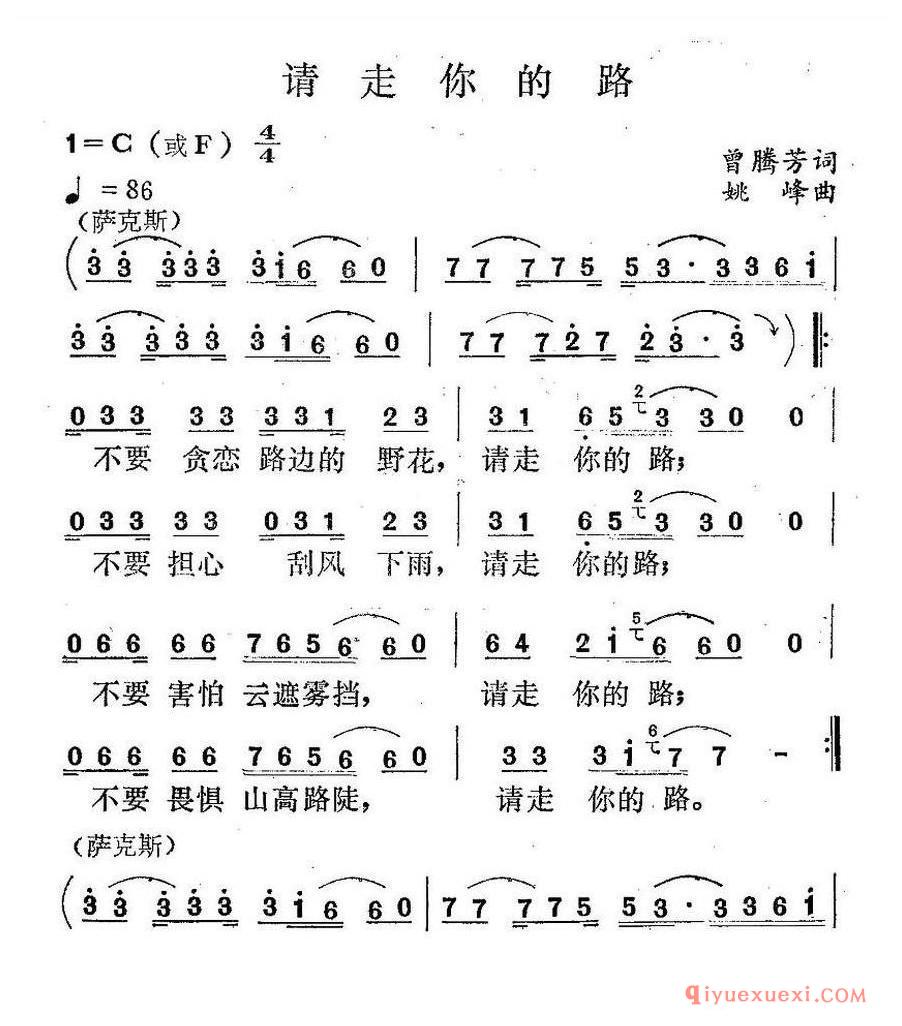 请走你的路
1=C（或F）4/4
曾腾芳词
♩=86
姚峰曲
（萨克斯）
(3 3 3 3 3 3 1 6 6 0 | 7 7 7 7 5 5 3 · 3 3 6 1 |
3 3 3 3 3 3 1 6 6 0 | 7 7 7 2 7 2 3 · 3 ) ‖:
0 3 3 3 3 3 3 1 2 3 | 3 1 6 5 2 3 3 0 0 |
不要 贪恋 路边的 野花，请走 你的 路；
0 3 3 3 3 0 3 1 2 3 | 3 1 6 5 2 3 3 0 0 |
不要 担心 刮风 下雨，请走 你的路；
0 6 6 6 6 7 6 5 6 6 0 | 6 4 2 1 5 6 6 0 0 |
不要 害怕 云遮雾挡， 请走 你的 路；
0 6 6 6 6 7 6 5 6 6 0 | 3 3 3 1 6 7 7 - :‖
不要 畏惧 山高路陡， 请走 你的 路。
（萨克斯）
(3 3 3 3 3 3 1 6 6 0 | 7 7 7 7 5 5 3 · 3 3 6 1 |
qiyuexuexi.com